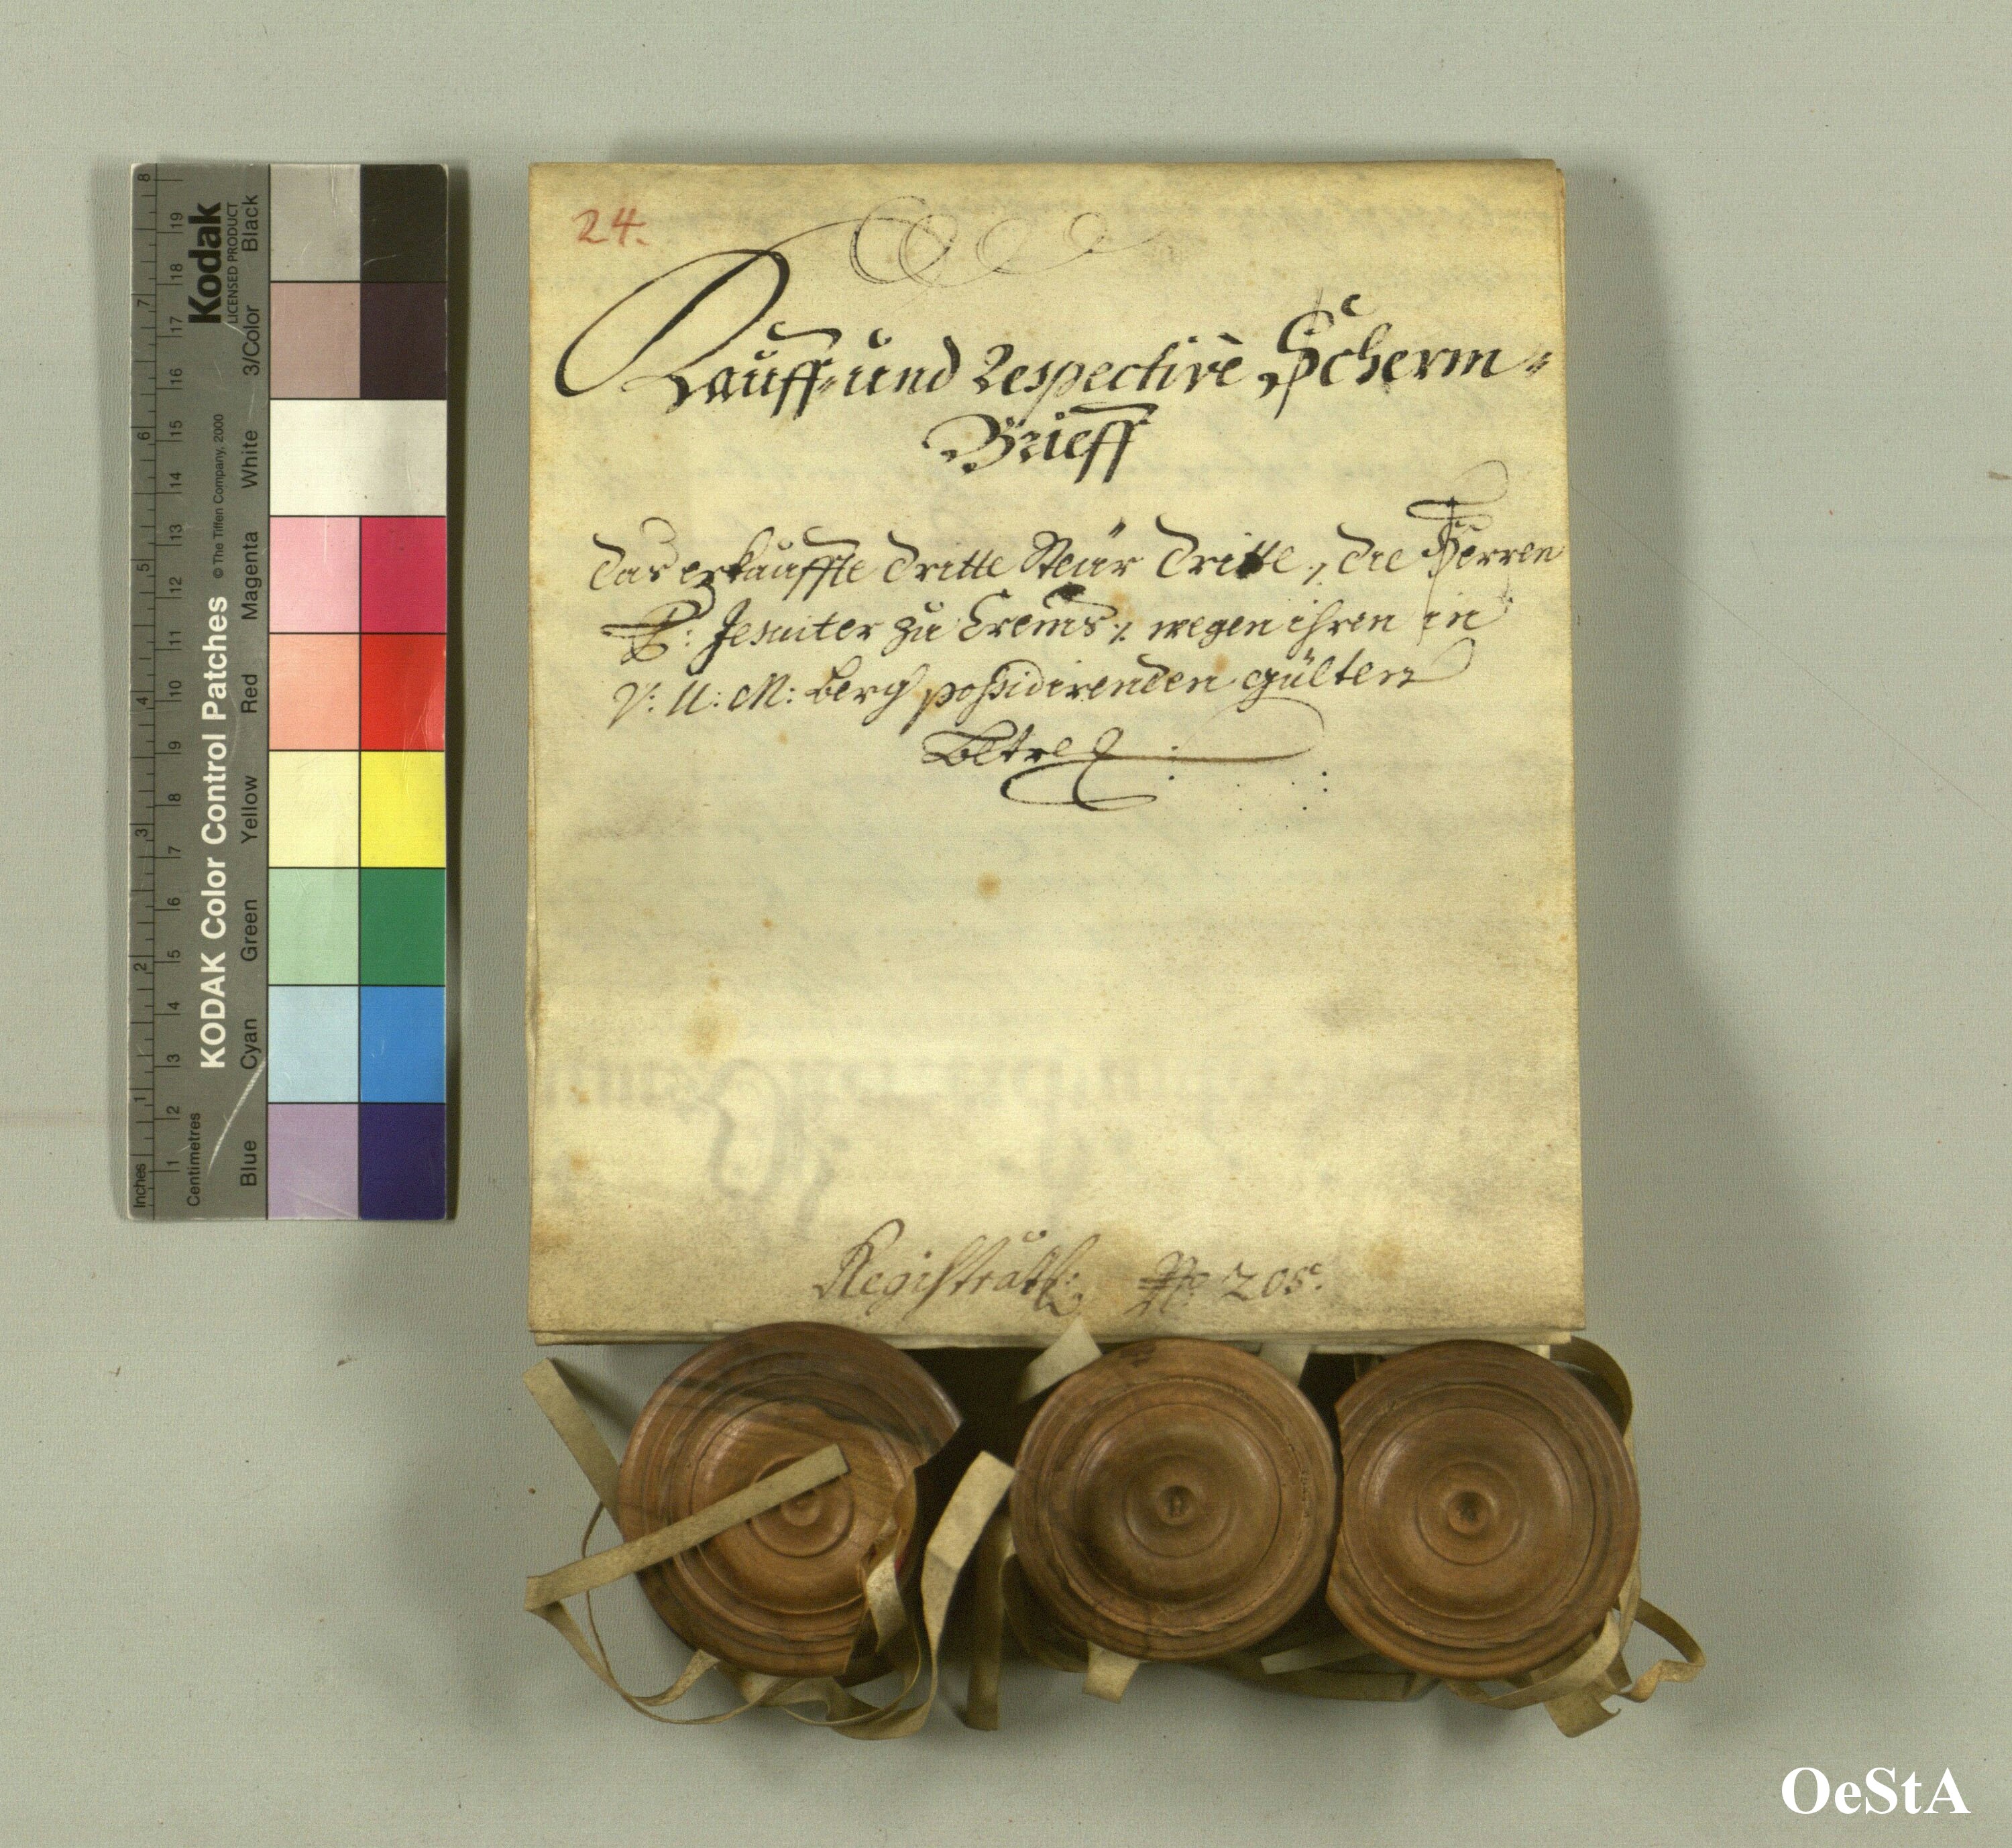 24.
Kauff- und Respectivè Scherm-
Brieff
Das erkauffte dritte Steür dritte, die Herren
P: Jesuiter zu Crembs, wegen ihren in
V: U: M: Berg possidirenden gülten
Betref
Registratℓ: No: 205.
KODAK Color Control Patches © The Tiffen Company, 2000
Kodak
LICENSED PRODUCT
Inches 1 2 3 4 5 6 7 8
Centimetres 1 2 3 4 5 6 7 8 9 10 11 12 13 14 15 16 17 18 19
Blue Cyan Green Yellow Red Magenta White 3/Color Black
OeStA